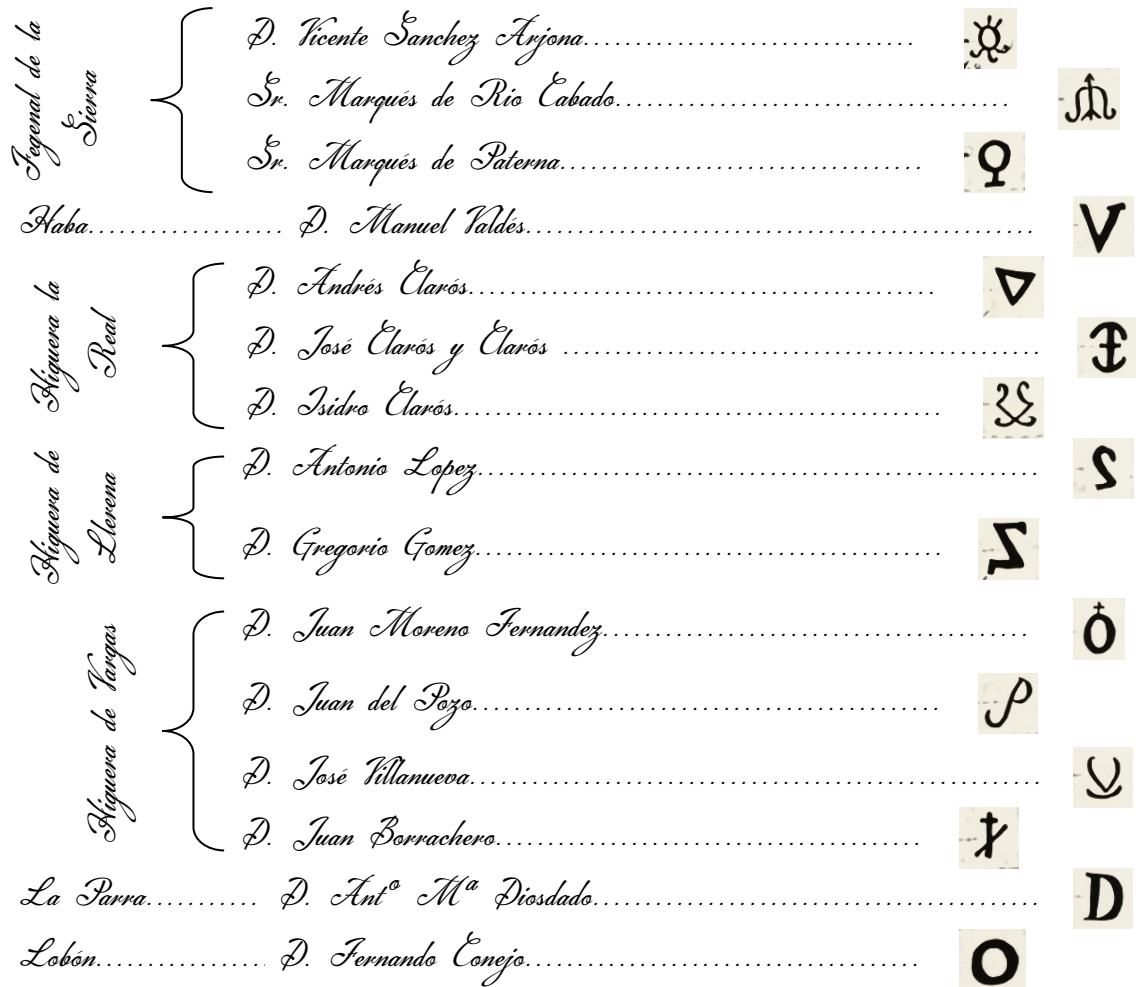 Fegenal de la
Sierra
D. Vicente Sanchez Arjona
Sr. Marqués de Rio Cabado
Sr. Marqués de Paterna
Haba D. Manuel Valdés V
Higuera la
Real
D. Andrés Clarós
D. José Clarós y Clarós
D. Isidro Clarós
Higuera de
Llerena
D. Antonio Lopez
D. Gregorio Gomez
Higuera de Vargas
D. Juan Moreno Fernandez
D. Juan del Pozo
D. José Villanueva
D. Juan Borrachero
La Parra D. Antº Mª Diosdado D
Lobón D. Fernando Conejo O